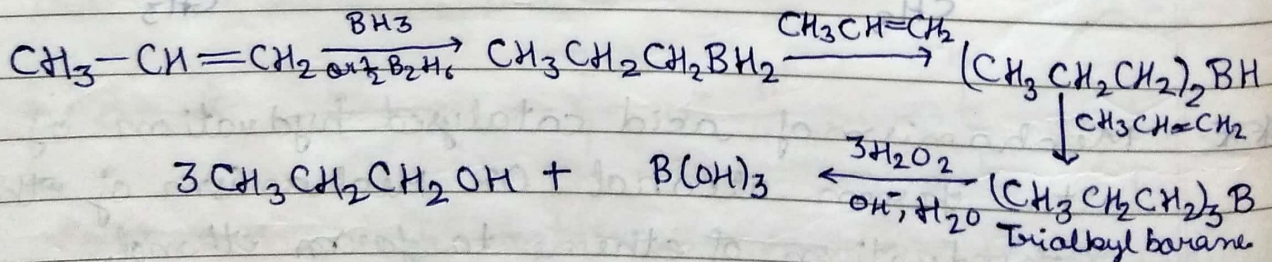 CH3-CH=CH2 BH3 or ½ B2H6 → CH3CH2CH2BH2 CH3CH=CH2 → (CH3CH2CH2)2BH
↓ CH3CH=CH2
3CH3CH2CH2OH + B(OH)3 ← 3H2O2 OH-, H2O (CH3CH2CH2)3B
Trialkyl borane